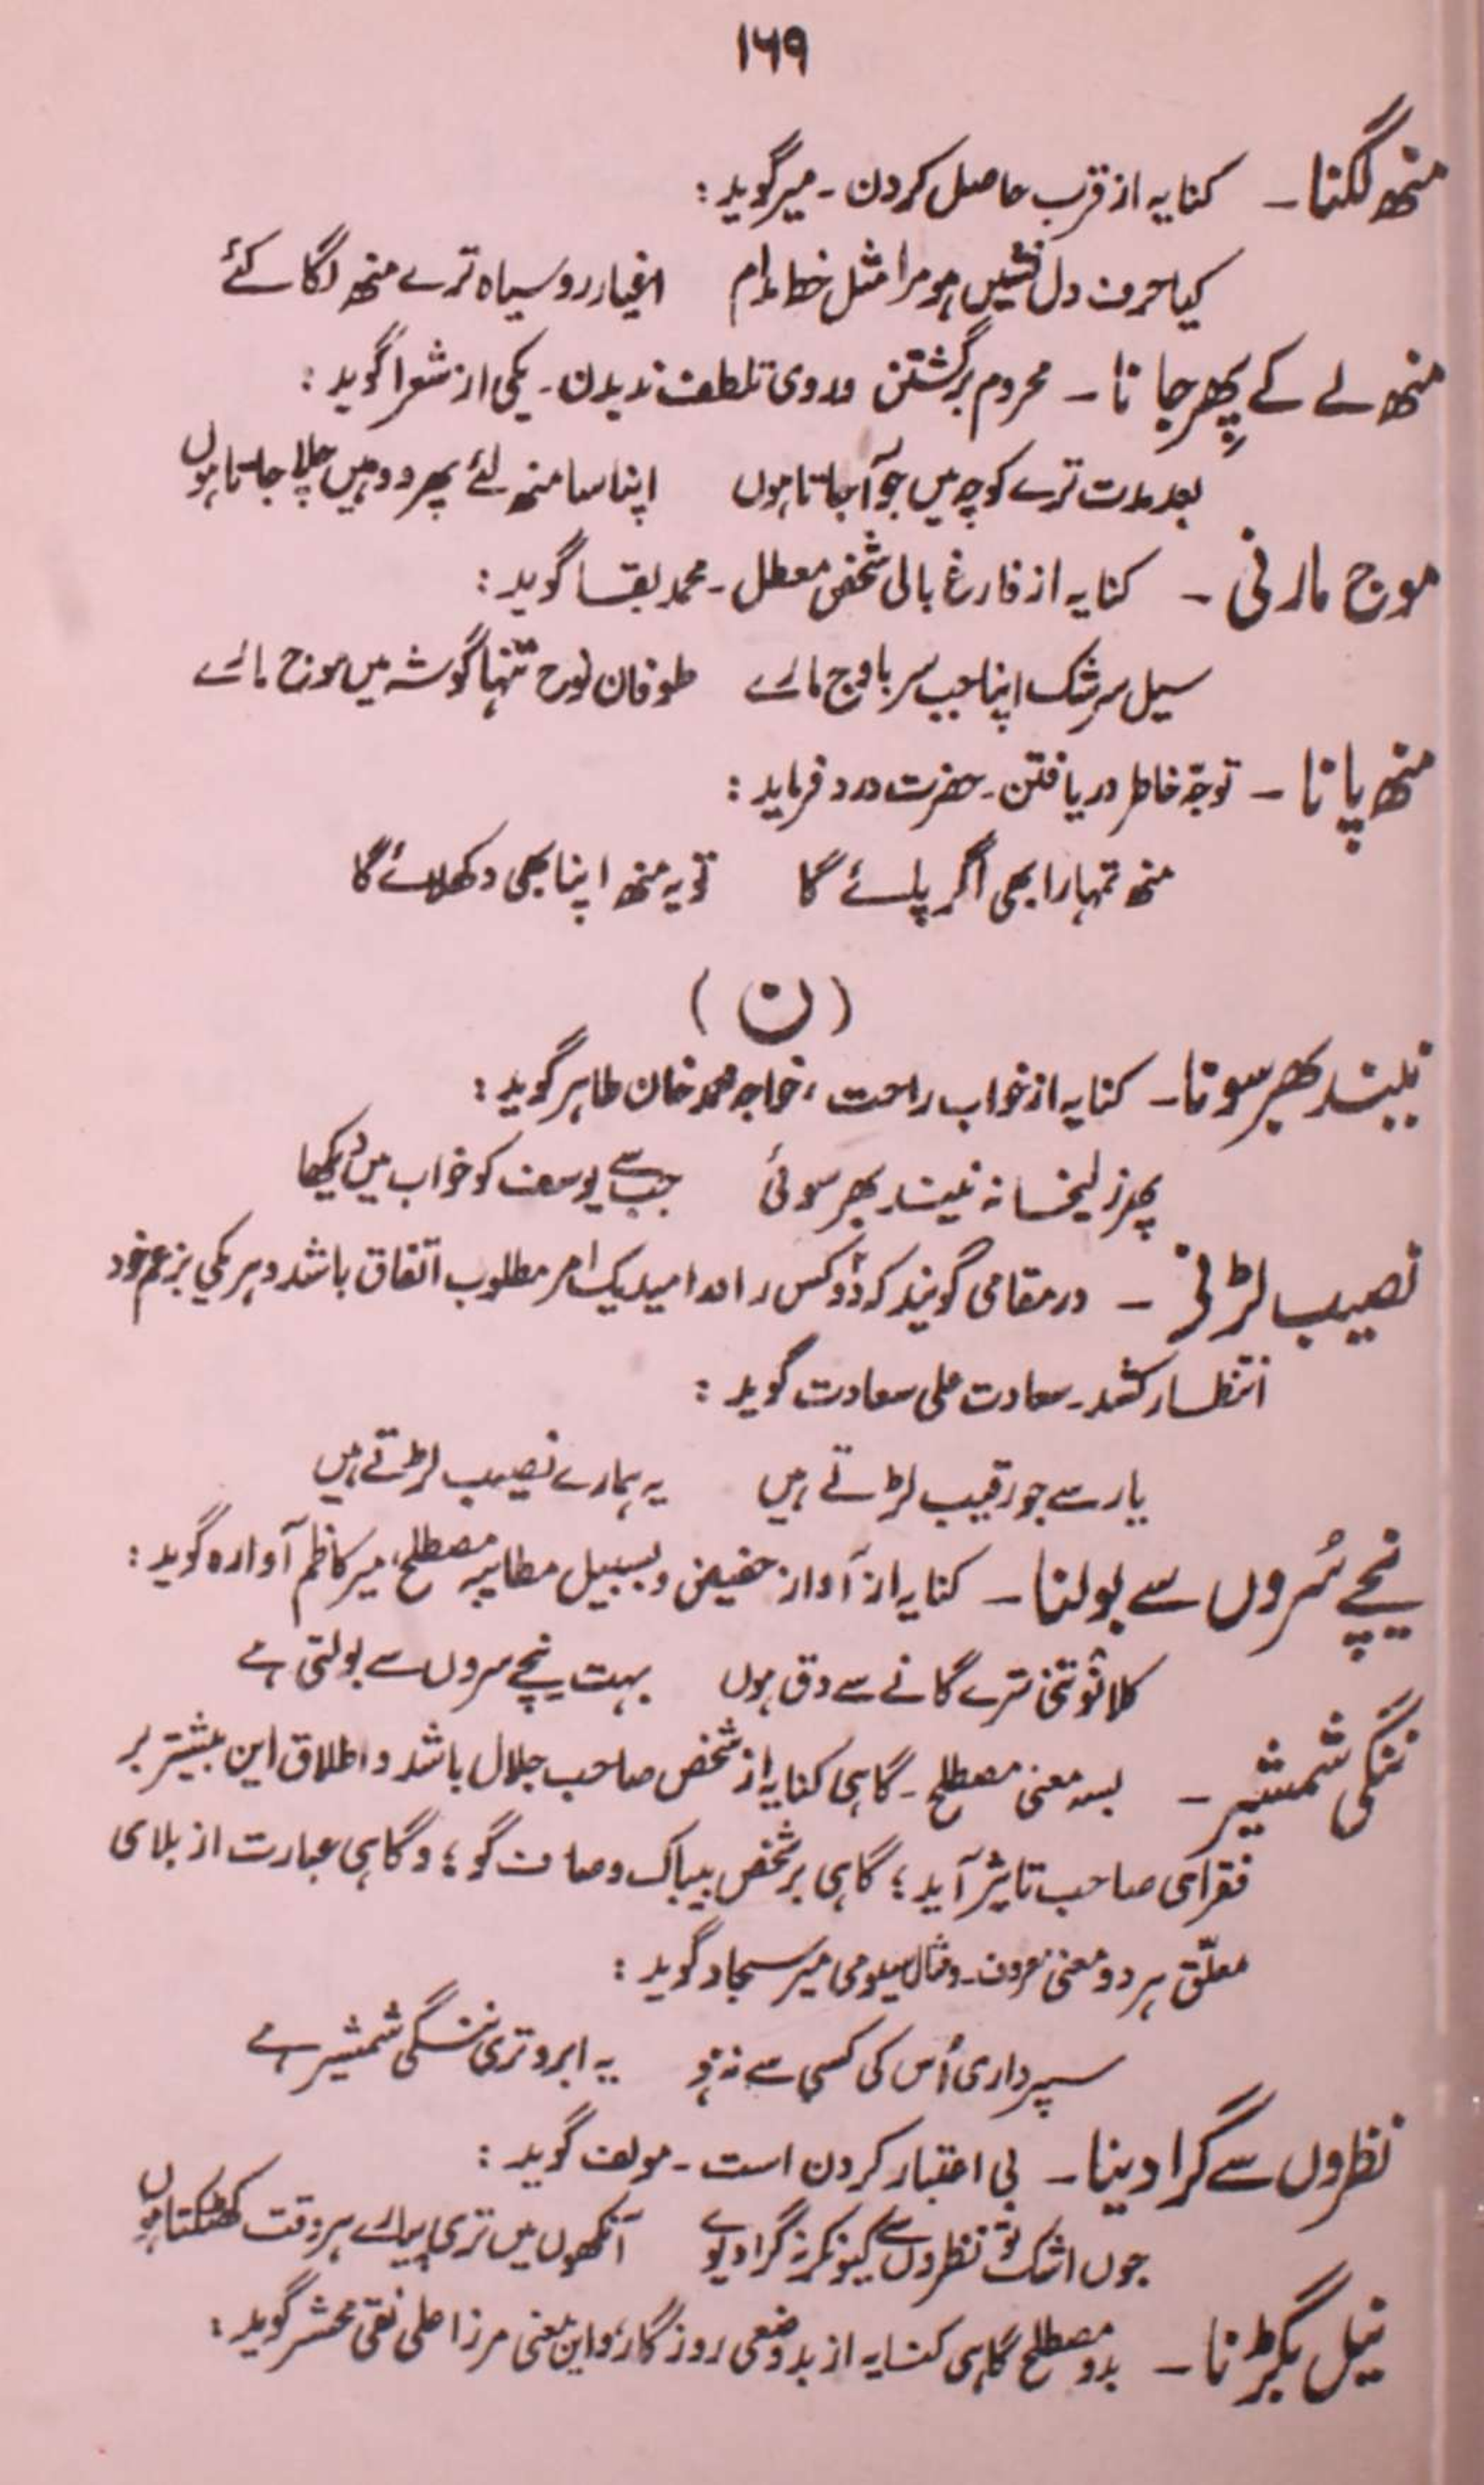 ۱۶۹
منھ لگنا ۔ کنایہ از قرب حاصل کردن ۔ میر گوید :
کیا حرف دل نشیں ہو مرا مثل خط مدام اغیار رو سیاہ ترے منھ لگا کئے
منھ لے کے پھر جانا ۔ محروم برگشتن و روی تلطف ندیدن ۔ یکی از شعرا گوید :
بعد مدت ترے کوچہ میں جو آ جاتا ہوں اپنا سا منھ لئے پھر ووہیں چلا جاتا ہوں
موج مارنی ۔ کنایہ از فارغ بالی شخص معطل ۔ محمد بقا گوید :
سیل سرشک اپنا جب سر باوج مارے طوفان نوح تنہا گوشہ میں موج مارے
منھ پانا ۔ توجّہ خاطر دریافتن ۔ حضرت درد فرماید :
منھ تمہارا بھی اگر پائے گا تو یہ منھ اپنا بھی دکھلائے گا
(ن)
نیند بھر سونا ۔ کنایہ از خواب راحت ، خواجہ محمد خان طاہر گوید :
پھر زلیخا نہ نیند بھر سوئی جب سے یوسف کو خواب میں دیکھا
نصیب لڑنے ۔ در مقامی گویند کہ دو کس را در امید یک امر مطلوب اتفاق باشد و ہر یکی بزعم خود
انتظار کشد ۔ سعادت علی سعادت گوید :
یار سے جو رقیب لڑتے ہیں یہ ہمارے نصیب لڑتے ہیں
نیچے سُروں سے بولنا ۔ کنایہ از آواز خفیض و بسبیل مطایبہ مصطلح ، میر کاظم آوارہ گوید :
کلانوتنی ترے گانے سے دق ہوں بہت نیچے سروں سے بولتی ہے
ننگی شمشیر ۔ بسہ معنی مصطلح ۔ گاہی کنایہ از شخص صاحب جلال باشد و اطلاق این بیشتر بر
فقرای صاحب تاثیر آید ؛ گاہی بر شخص بیباک و صاف گو ؛ و گاہی عبارت از بلای
معلّق ہر دو معنی معروف ۔ و مثال سیومی میر سجاد گوید :
سپرداری اُس کی کسی سے نہ ہو یہ ابرو تری ننگی شمشیر ہے
نظروں سے گرا دینا ۔ بی اعتبار کردن است ۔ مولف گوید :
جوں اشک تو نظروں سے کیونکر نہ گرا دیوے آنکھوں میں تری پیارے ہر وقت کھٹکتا ہوں
نیل بگڑنا ۔ بدو مصطلح گاہی کنایہ از بدوضعی روزگار ، و این معنی مرزا علی نقی محشر گوید :